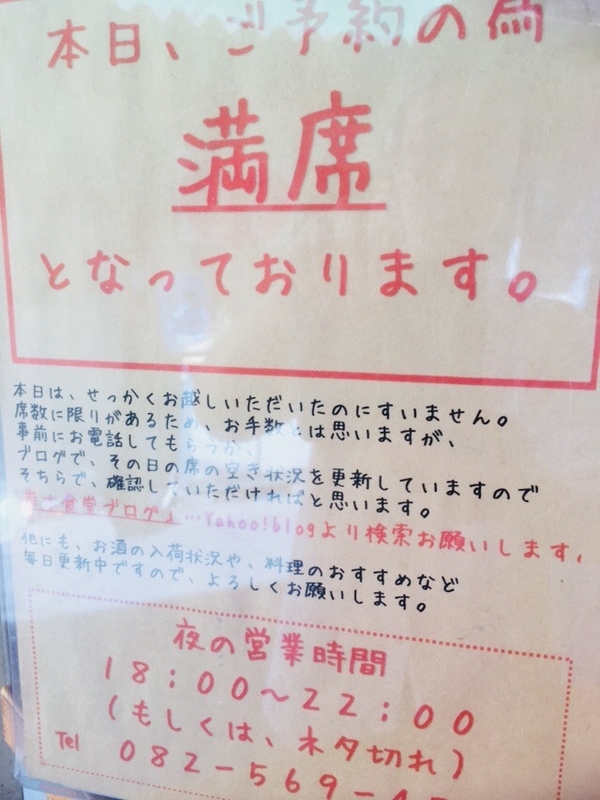 本日、ご予約の為
満席
となっております。
本日は、せっかくお越しいただいたのにすいません。
席数に限りがあるため、お手数とは思いますが、
事前にお電話してもらうか、
ブログで、その日の席の空き状況を更新していますので
そちらで、確認していただければと思います。
食堂ブログ」…Yahoo!blogより検索お願いします。
他にも、お酒の入荷状況や、料理のおすすめなど
毎日更新中ですので、よろしくお願いします。
夜の営業時間
18:00～22:00
(もしくは、ネタ切れ)
Tel 082-569-